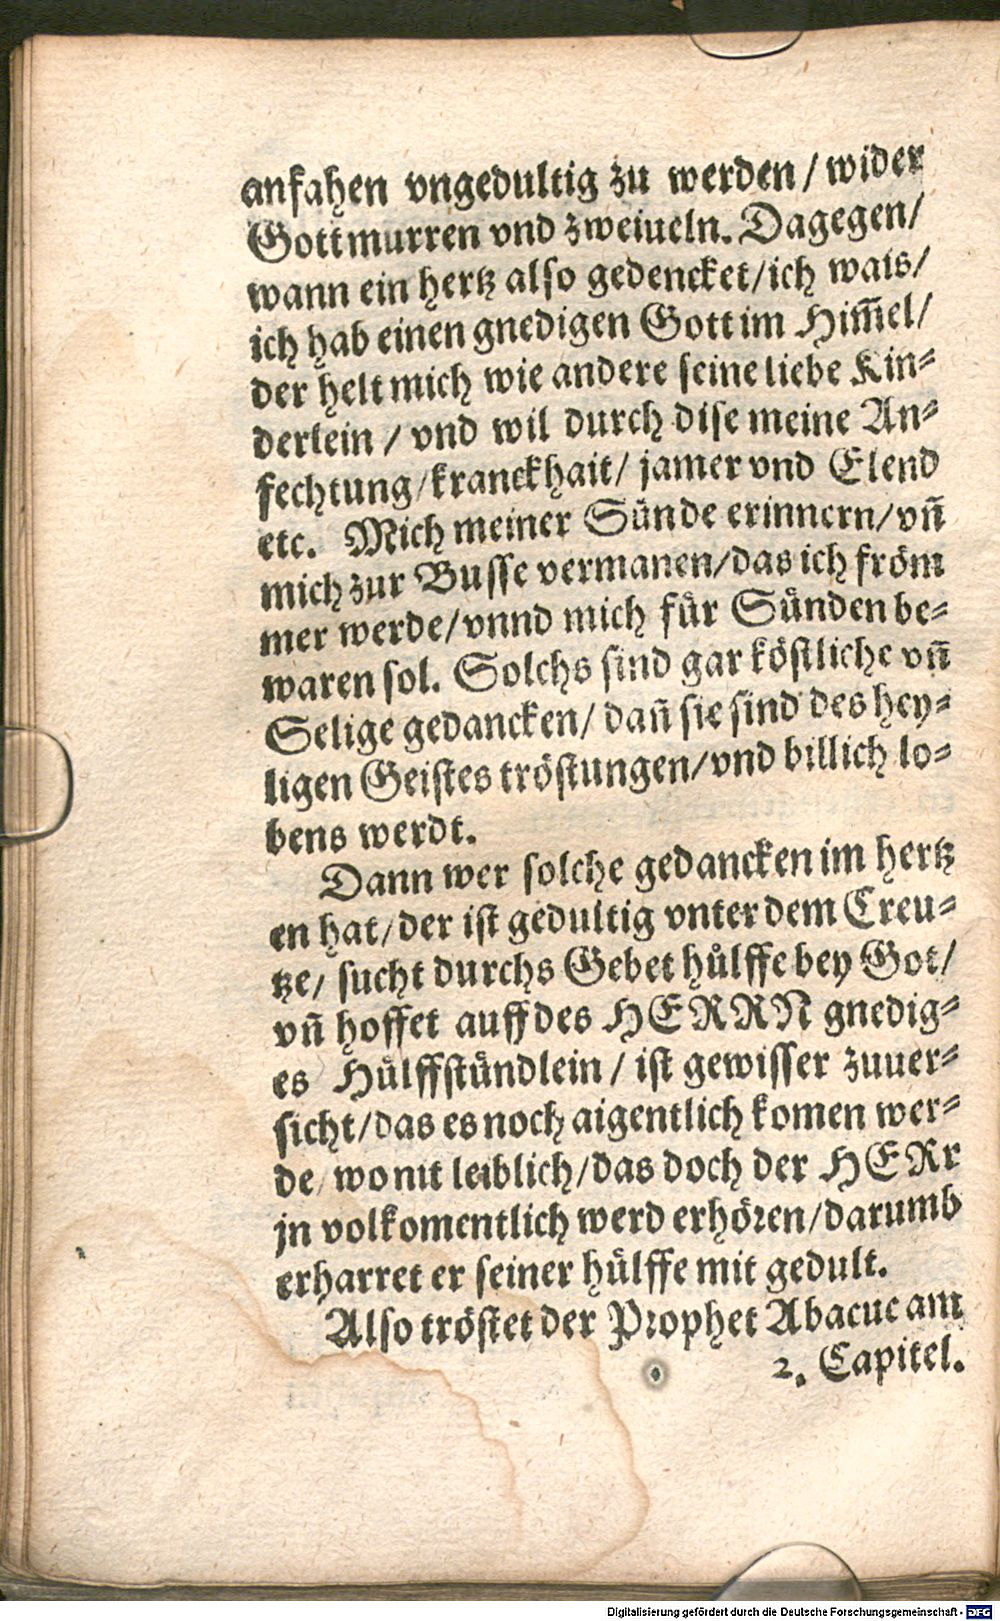 anfahen vngedultig zu werden / wider
Gott murren vnd zweiueln. Dagegen/
wann ein hertz also gedencket/ich wais/
ich hab einen gnedigen Gott im Him̄el/
der helt mich wie andere seine liebe Kin⸗
derlein / vnd wil durch dise meine An⸗
fechtung/kranckhait/ jamer vnd Elend
etc. Mich meiner Sünde erinnern/vn̄
mich zur Busse vermanen/das ich fröm
mer werde/vnnd mich für Sünden be⸗
waren sol. Solchs sind gar köstliche vn̄
Selige gedancken/ dan̄ sie sind des hey⸗
ligen Geistes tröstungen/vnd billich lo⸗
bens werdt.
Dann wer solche gedancken im hertz
en hat/der ist gedultig vnter dem Creu⸗
tze/ sucht durchs Gebet hülffe bey Got/
vn̄ hoffet auff des HERRN gnedig⸗
es Hülffstündlein / ist gewisser zuuer⸗
sicht/das es noch aigentlich komen wer⸗
de/ wo nit leiblich/das doch der HERr
jn volkomentlich werd erhören/darumb
erharret er seiner hülffe mit gedult.
Also tröstet der Prophet Abacuc am
2. Capitel.
Digitalisierung gefördert durch die Deutsche Forschungsgemeinschaft - DFG